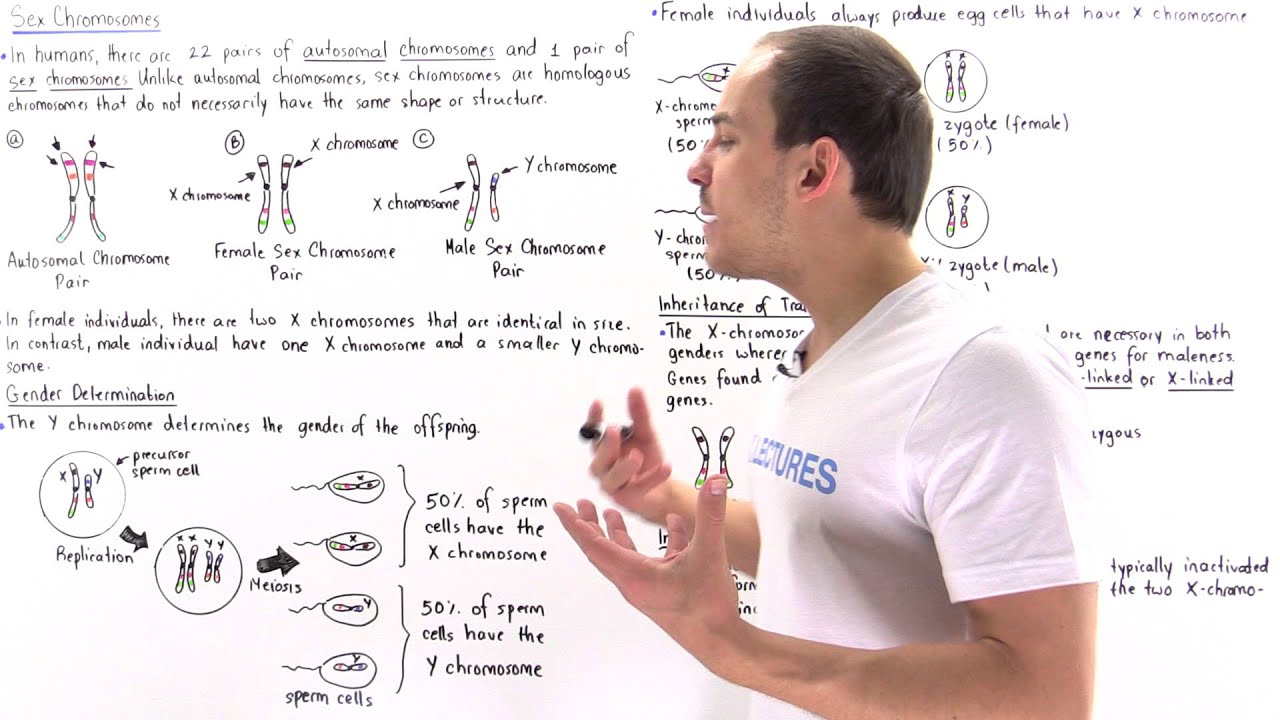 Sex Chromosomes
• In humans, there are 22 pairs of autosomal chromosomes and 1 pair of
sex chromosomes. Unlike autosomal chromosomes, sex chromosomes are homologous
chromosomes that do not necessarily have the same shape or structure.
a
B
X chromosome
X chromosome
C
Y chromosome
X chromosome
Autosomal Chromosome
Pair
Female Sex Chromosome
Pair
Male Sex Chromosome
Pair
• In female individuals, there are two X chromosomes that are identical in size.
In contrast, male individual have one X chromosome and a smaller Y chromo-
some.
Gender Determination
• The Y chromosome determines the gender of the offspring.
X Y
precursor
sperm cell
Replication
X X Y Y
Meiosis
X
X
Y
Y
sperm cells
50% of sperm
cells have the
X chromosome
50% of sperm
cells have the
Y chromosome
• Female individuals always produce egg cells that have X chromosome
X-chromo
sperm
(50%
X X
zygote (female)
(50%)
Y-chro
sperm
(50%
X Y
zygote (male)
Inheritance of Tra
• The X-chromoso
are necessary in both
genders wherea
genes for maleness.
Genes found
-linked or X-linked
genes.
zygous
In
typically inactivated
the two X-chromo-
LECTURES